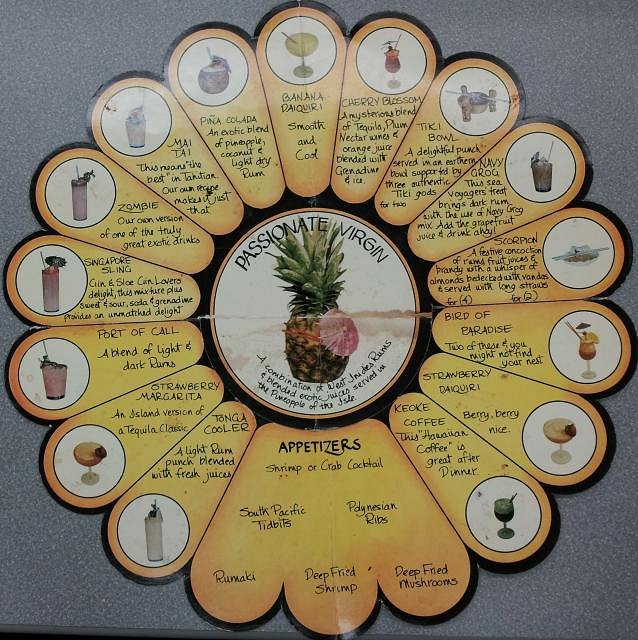 PASSIONATE VIRGIN
A combination of West Indies Rums
& blended exotic juices served in
the Pineapple of the Isle.
BANANA
DAIQUIRI
Smooth
and
Cool
CHERRY BLOSSOM
A mysterious blend
of Tequila, Plum
Nectar wines &
orange juice
blended with
Grenadine
& ice.
TIKI
BOWL
A delightful punch
served in an earthern
bowl supported by
three authentic
Tiki gods
for two
NAVY
GROG
This sea
voyagers treat
brings dark rum
with the use of Navy Grog
mix. Add the grapefruit
juice & drink ahoy!
SCORPION
A festive concoction
of rums fruit juices &
brandy with a whisper of
almonds bedecked with vandas
& served with long straws
for (4) for (2)
BIRD OF
PARADISE
Two of these & you
might not find
your nest
STRAWBERRY
DAIQUIRI
Berry, berry
nice.
KEOKE
COFFEE
This "Hawaiian
Coffee" is
great after
Dinner.
APPETIZERS
Shrimp or Crab Cocktail
South Pacific
Tidbits
Polynesian
Ribs
Rumaki
Deep Fried
Shrimp
Deep Fried
Mushrooms
TONGA
COOLER
A light Rum
punch blended
with fresh juices
STRAWBERRY
MARGARITA
An Island version of
a Tequila Classic
PORT OF CALL
A blend of light &
dark Rums
SINGAPORE
SLING
Gin & Sloe Gin Lovers
delight, this mixture plus
sweet & sour, soda & grenadine
provides an unmatched delight
ZOMBIE
Our own version
of one of the truly
great exotic drinks
MAI
TAI
This means "the
best" in Tahitian
Our own recipe
makes it just
that
PIÑA COLADA
An exotic blend
of pineapple,
coconut &
light dry
Rum